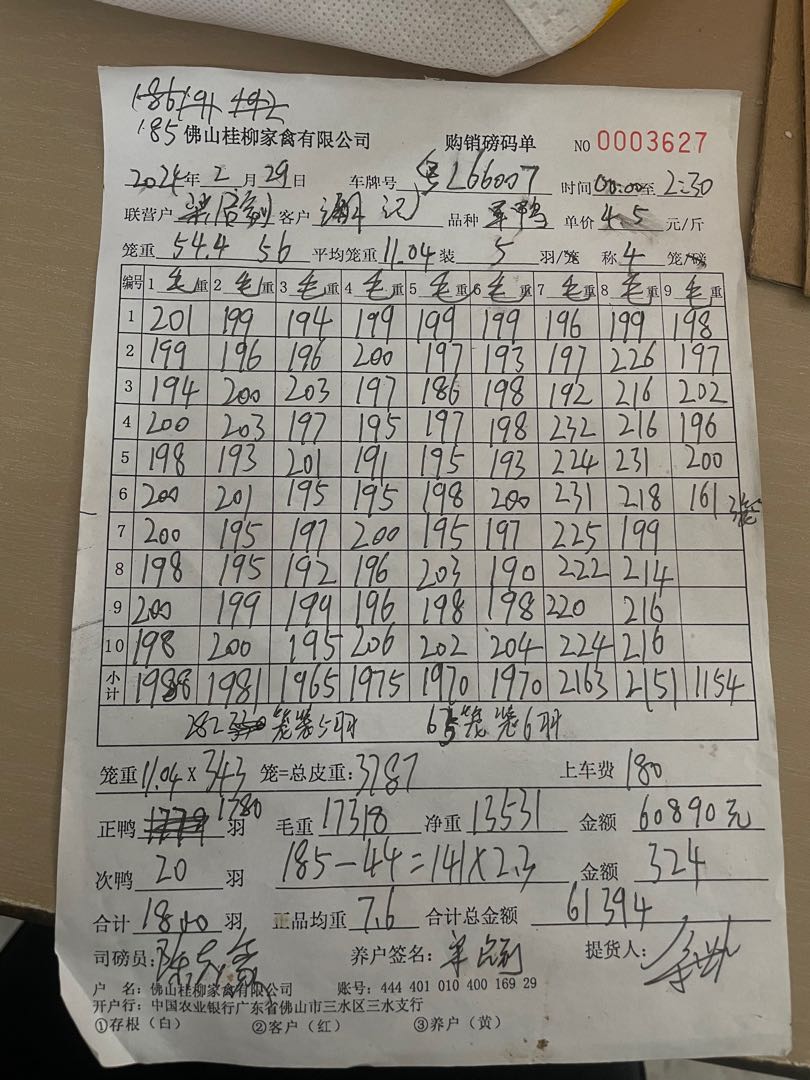 186 191 192
185 佛山桂柳家禽有限公司 购销磅码单 NO 0003627
2024年2月29日 车牌号 粤L66007 时间00:00至2:30
联营户 客户 品种 单价4.5元/斤
笼重 54.4 56 平均笼重11.04装 5 羽/笼 称4笼/磅
编号 1毛重 2毛重 3毛重 4毛重 5毛重 6毛重 7毛重 8毛重 9毛重
1 201 199 194 199 199 199 196 199 198
2 199 196 196 200 197 193 197 226 197
3 194 200 203 197 186 198 192 216 202
4 200 203 197 195 197 198 232 216 196
5 198 193 201 191 195 193 224 231 200
6 200 201 195 195 198 200 231 218 161 3笼
7 200 195 197 200 195 197 225 199
8 198 195 192 196 203 190 222 214
9 200 199 194 196 198 198 220 216
10 198 200 195 206 202 204 224 216
小计 1988 1981 1965 1975 1970 1970 2163 2151 1154
282 笼装5羽 6 笼装6羽
笼重11.04×343笼=总皮重:3787 上车费 180
正鸭 1779 1780 羽 毛重17318 净重13531 金额60890元
次鸭 20 羽 185-44=141×2.3 金额 324
合计1800羽 正品均重7.6 合计总金额 61394
司磅员: 养户签名: 提货人:
户 名:佛山桂柳家禽有限公司 账号:444 401 010 400 169 29
开户行:中国农业银行广东省佛山市三水区三水支行
①存根(白) ②客户(红) ③养户(黄)